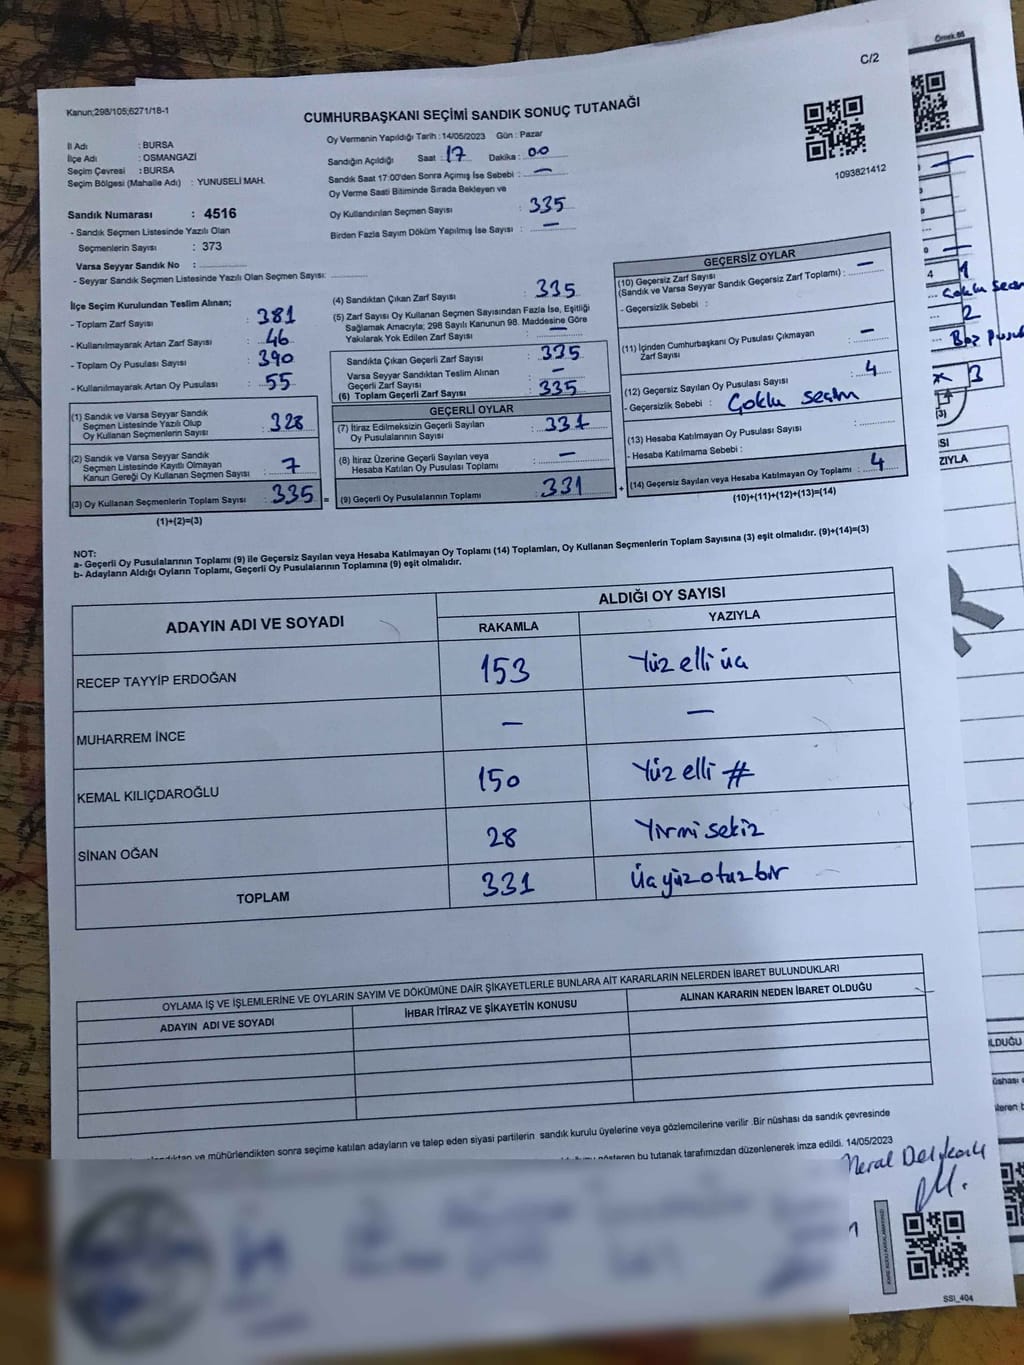 Örnek.86
C/2
Kanun;298/105;6271/18-1
CUMHURBAŞKANI SEÇİMİ SANDIK SONUÇ TUTANAĞI
İl Adı : BURSA
İlçe Adı : OSMANGAZİ
Seçim Çevresi : BURSA
Seçim Bölgesi (Mahalle Adı) : YUNUSELİ MAH.
Sandık Numarası : 4516
- Sandık Seçmen Listesinde Yazılı Olan
Seçmenlerin Sayısı : 373
Varsa Seyyar Sandık No :
- Seyyar Sandık Seçmen Listesinde Yazılı Olan Seçmen Sayısı:
Oy Vermenin Yapıldığı Tarih : 14/05/2023 Gün : Pazar
Sandığın Açıldığı Saat : 17 Dakika : 00
Sandık Saat 17:00'den Sonra Açımış İse Sebebi : —
Oy Verme Saati Bitiminde Sırada Bekleyen ve
Oy Kullandırılan Seçmen Sayısı : 335
Birden Fazla Sayım Döküm Yapılmış İse Sayısı : —
1093821412
İlçe Seçim Kurulundan Teslim Alınan;
- Toplam Zarf Sayısı : 381
- Kullanılmayarak Artan Zarf Sayısı : 46
- Toplam Oy Pusulası Sayısı : 390
- Kullanılmayarak Artan Oy Pusulası : 55
(1) Sandık ve Varsa Seyyar Sandık
Seçmen Listesinde Yazılı Olup
Oy Kullanan Seçmenlerin Sayısı : 328
(2) Sandık ve Varsa Seyyar Sandık
Seçmen Listesinde Kayıtlı Olmayan
Kanun Gereği Oy Kullanan Seçmen Sayısı : 7
(3) Oy Kullanan Seçmenlerin Toplam Sayısı : 335 =
(1)+(2)=(3)
(4) Sandıktan Çıkan Zarf Sayısı : 335
(5) Zarf Sayısı Oy Kullanan Seçmen Sayısından Fazla İse, Eşitliği
Sağlamak Amacıyla; 298 Sayılı Kanunun 98. Maddesine Göre
Yakılarak Yok Edilen Zarf Sayısı : —
Sandıkta Çıkan Geçerli Zarf Sayısı : 335
Varsa Seyyar Sandıktan Teslim Alınan
Geçerli Zarf Sayısı : —
(6) Toplam Geçerli Zarf Sayısı : 335
GEÇERLİ OYLAR
(7) İtiraz Edilmeksizin Geçerli Sayılan
Oy Pusulalarının Sayısı : 331
(8) İtiraz Üzerine Geçerli Sayılan veya
Hesaba Katılan Oy Pusulası Toplamı : —
(9) Geçerli Oy Pusulalarının Toplamı : 331 +
GEÇERSİZ OYLAR
(10) Geçersiz Zarf Sayısı
(Sandık ve Varsa Seyyar Sandık Geçersiz Zarf Toplamı) : —
- Geçersizlik Sebebi :
(11) İçinden Cumhurbaşkanı Oy Pusulası Çıkmayan
Zarf Sayısı : —
(12) Geçersiz Sayılan Oy Pusulası Sayısı : 4
- Geçersizlik Sebebi : Çoklu seçim
(13) Hesaba Katılmayan Oy Pusulası Sayısı :
- Hesaba Katılmama Sebebi :
(14) Geçersiz Sayılan veya Hesaba Katılmayan Oy Toplamı : 4
(10)+(11)+(12)+(13)=(14)
NOT:
a- Geçerli Oy Pusulalarının Toplamı (9) ile Geçersiz Sayılan veya Hesaba Katılmayan Oy Toplamı (14) Toplamları, Oy Kullanan Seçmenlerin Toplam Sayısına (3) eşit olmalıdır. (9)+(14)=(3)
b- Adayların Aldığı Oyların Toplamı, Geçerli Oy Pusulalarının Toplamına (9) eşit olmalıdır.
ADAYIN ADI VE SOYADI
ALDIĞI OY SAYISI
RAKAMLA YAZIYLA
RECEP TAYYİP ERDOĞAN 153 Yüz elli üç
MUHARREM İNCE — —
KEMAL KILIÇDAROĞLU 150 Yüz elli #
SİNAN OĞAN 28 Yirmi sekiz
TOPLAM 331 Üçyüzotuzbir
OYLAMA İŞ VE İŞLEMLERİNE VE OYLARIN SAYIM VE DÖKÜMÜNE DAİR ŞİKAYETLERLE BUNLARA AİT KARARLARIN NELERDEN İBARET BULUNDUKLARI
ADAYIN ADI VE SOYADI İHBAR İTİRAZ VE ŞİKAYETİN KONUSU ALINAN KARARIN NEDEN İBARET OLDUĞU
ve mühürlendikten sonra seçime katılan adayların ve talep eden siyasi partilerin sandık kurulu üyelerine veya gözlemcilerine verilir .Bir nüshası da sandık çevresinde
gösteren bu tutanak tarafımızdan düzenlenerek imza edildi. 14/05/2023
Meral
SSI_404
4 1
Çoklu seçim
2
Boş
3
(3)
YAZIYLA